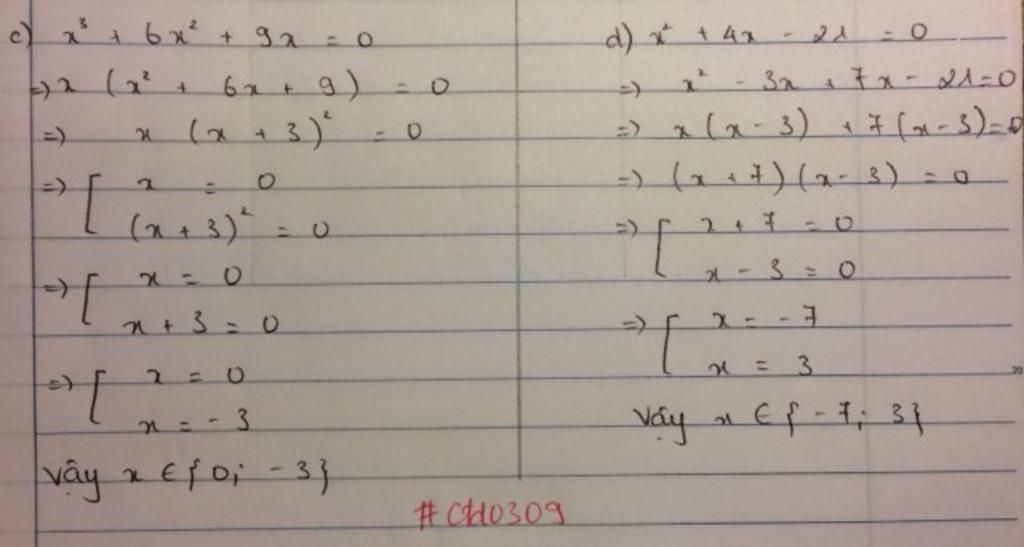 c) x³ + 6x² + 9x = 0
=> x (x² + 6x + 9) = 0
=> x (x + 3)² = 0
=> [ x = 0
(x + 3)² = 0
=> [ x = 0
x + 3 = 0
=> [ x = 0
x = - 3
Vậy x ∈ { 0; - 3}
d) x² + 4x - 21 = 0
=> x² - 3x + 7x - 21 = 0
=> x (x - 3) + 7 (x - 3) = 0
=> (x + 7) (x - 3) = 0
=> [ x + 7 = 0
x - 3 = 0
=> [ x = - 7
x = 3
Vậy x ∈ { - 7; 3}